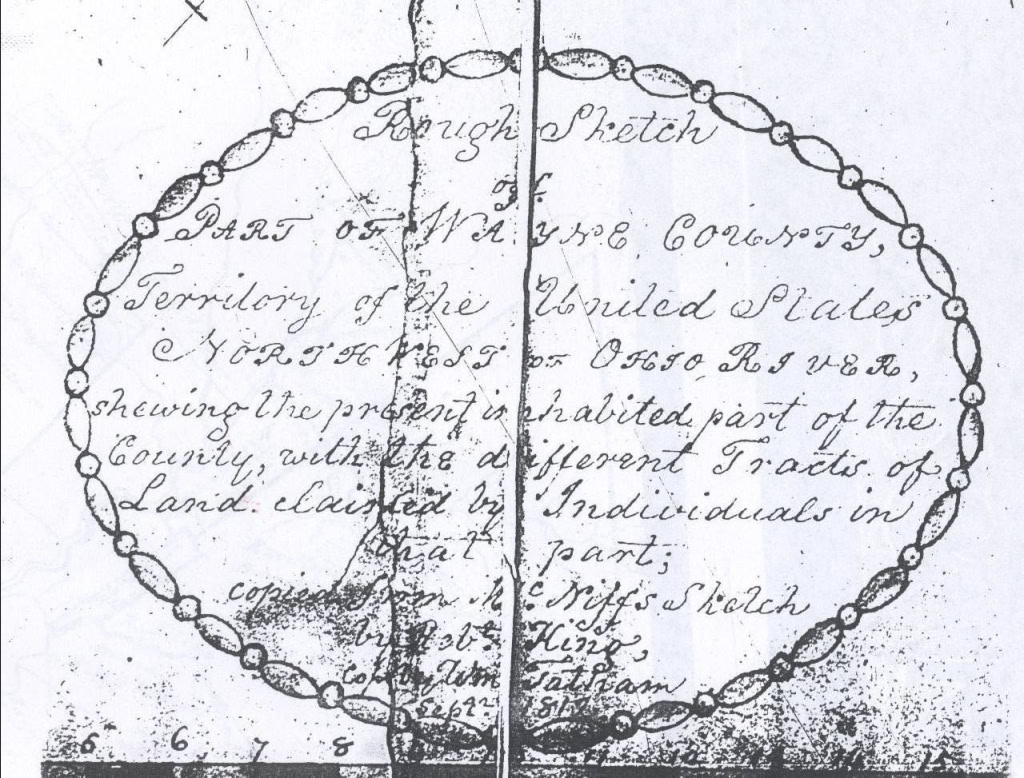 Rough Sketch
of
PART OF WAYNE COUNTY,
Territory of the United States
NORTHWEST OF OHIO RIVER,
shewing the present inhabited part of the
County, with the different Tracts of
Land claimed by Individuals in
that part;
copied from McNiff's Sketch
by Robt. King,
Cop. by Wm Tatham
Septr 181
5 6 7 8 11 12 13 14 15